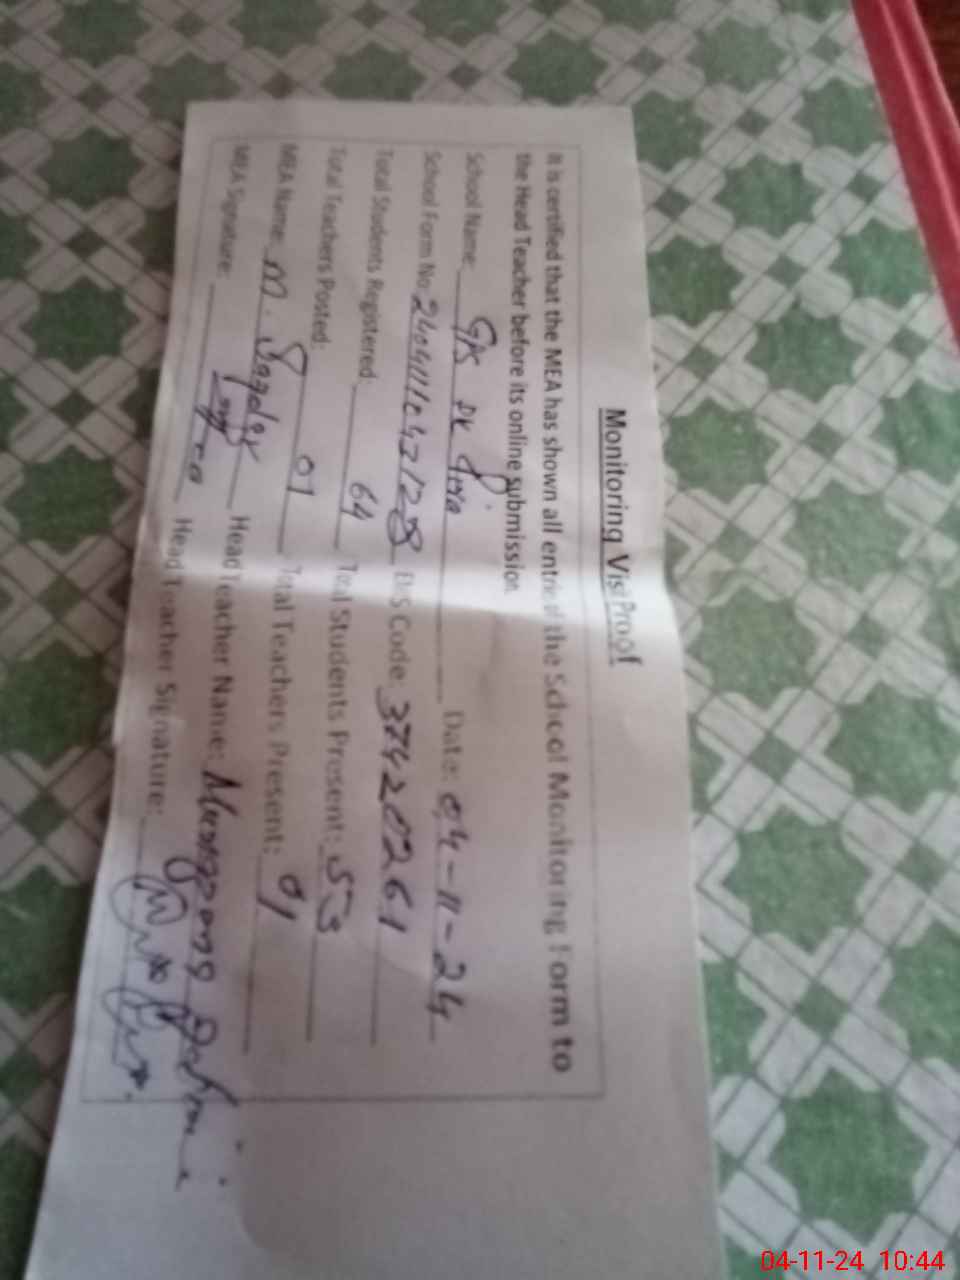 Monitoring Visit Proof
It is certified that the MEA has shown all entries of the School Monitoring Form to
the Head Teacher before its online submission.
School Name: GPS DK Date: 04-11-24
School Form No: EMIS Code: 37420261
Total Students Registered: 64 Total Students Present: 53
Total Teachers Posted: 01 Total Teachers Present: 01
MEA Name: M. Head Teacher Name:
MEA Signature: Head Teacher Signature:
04-11-24 10:44